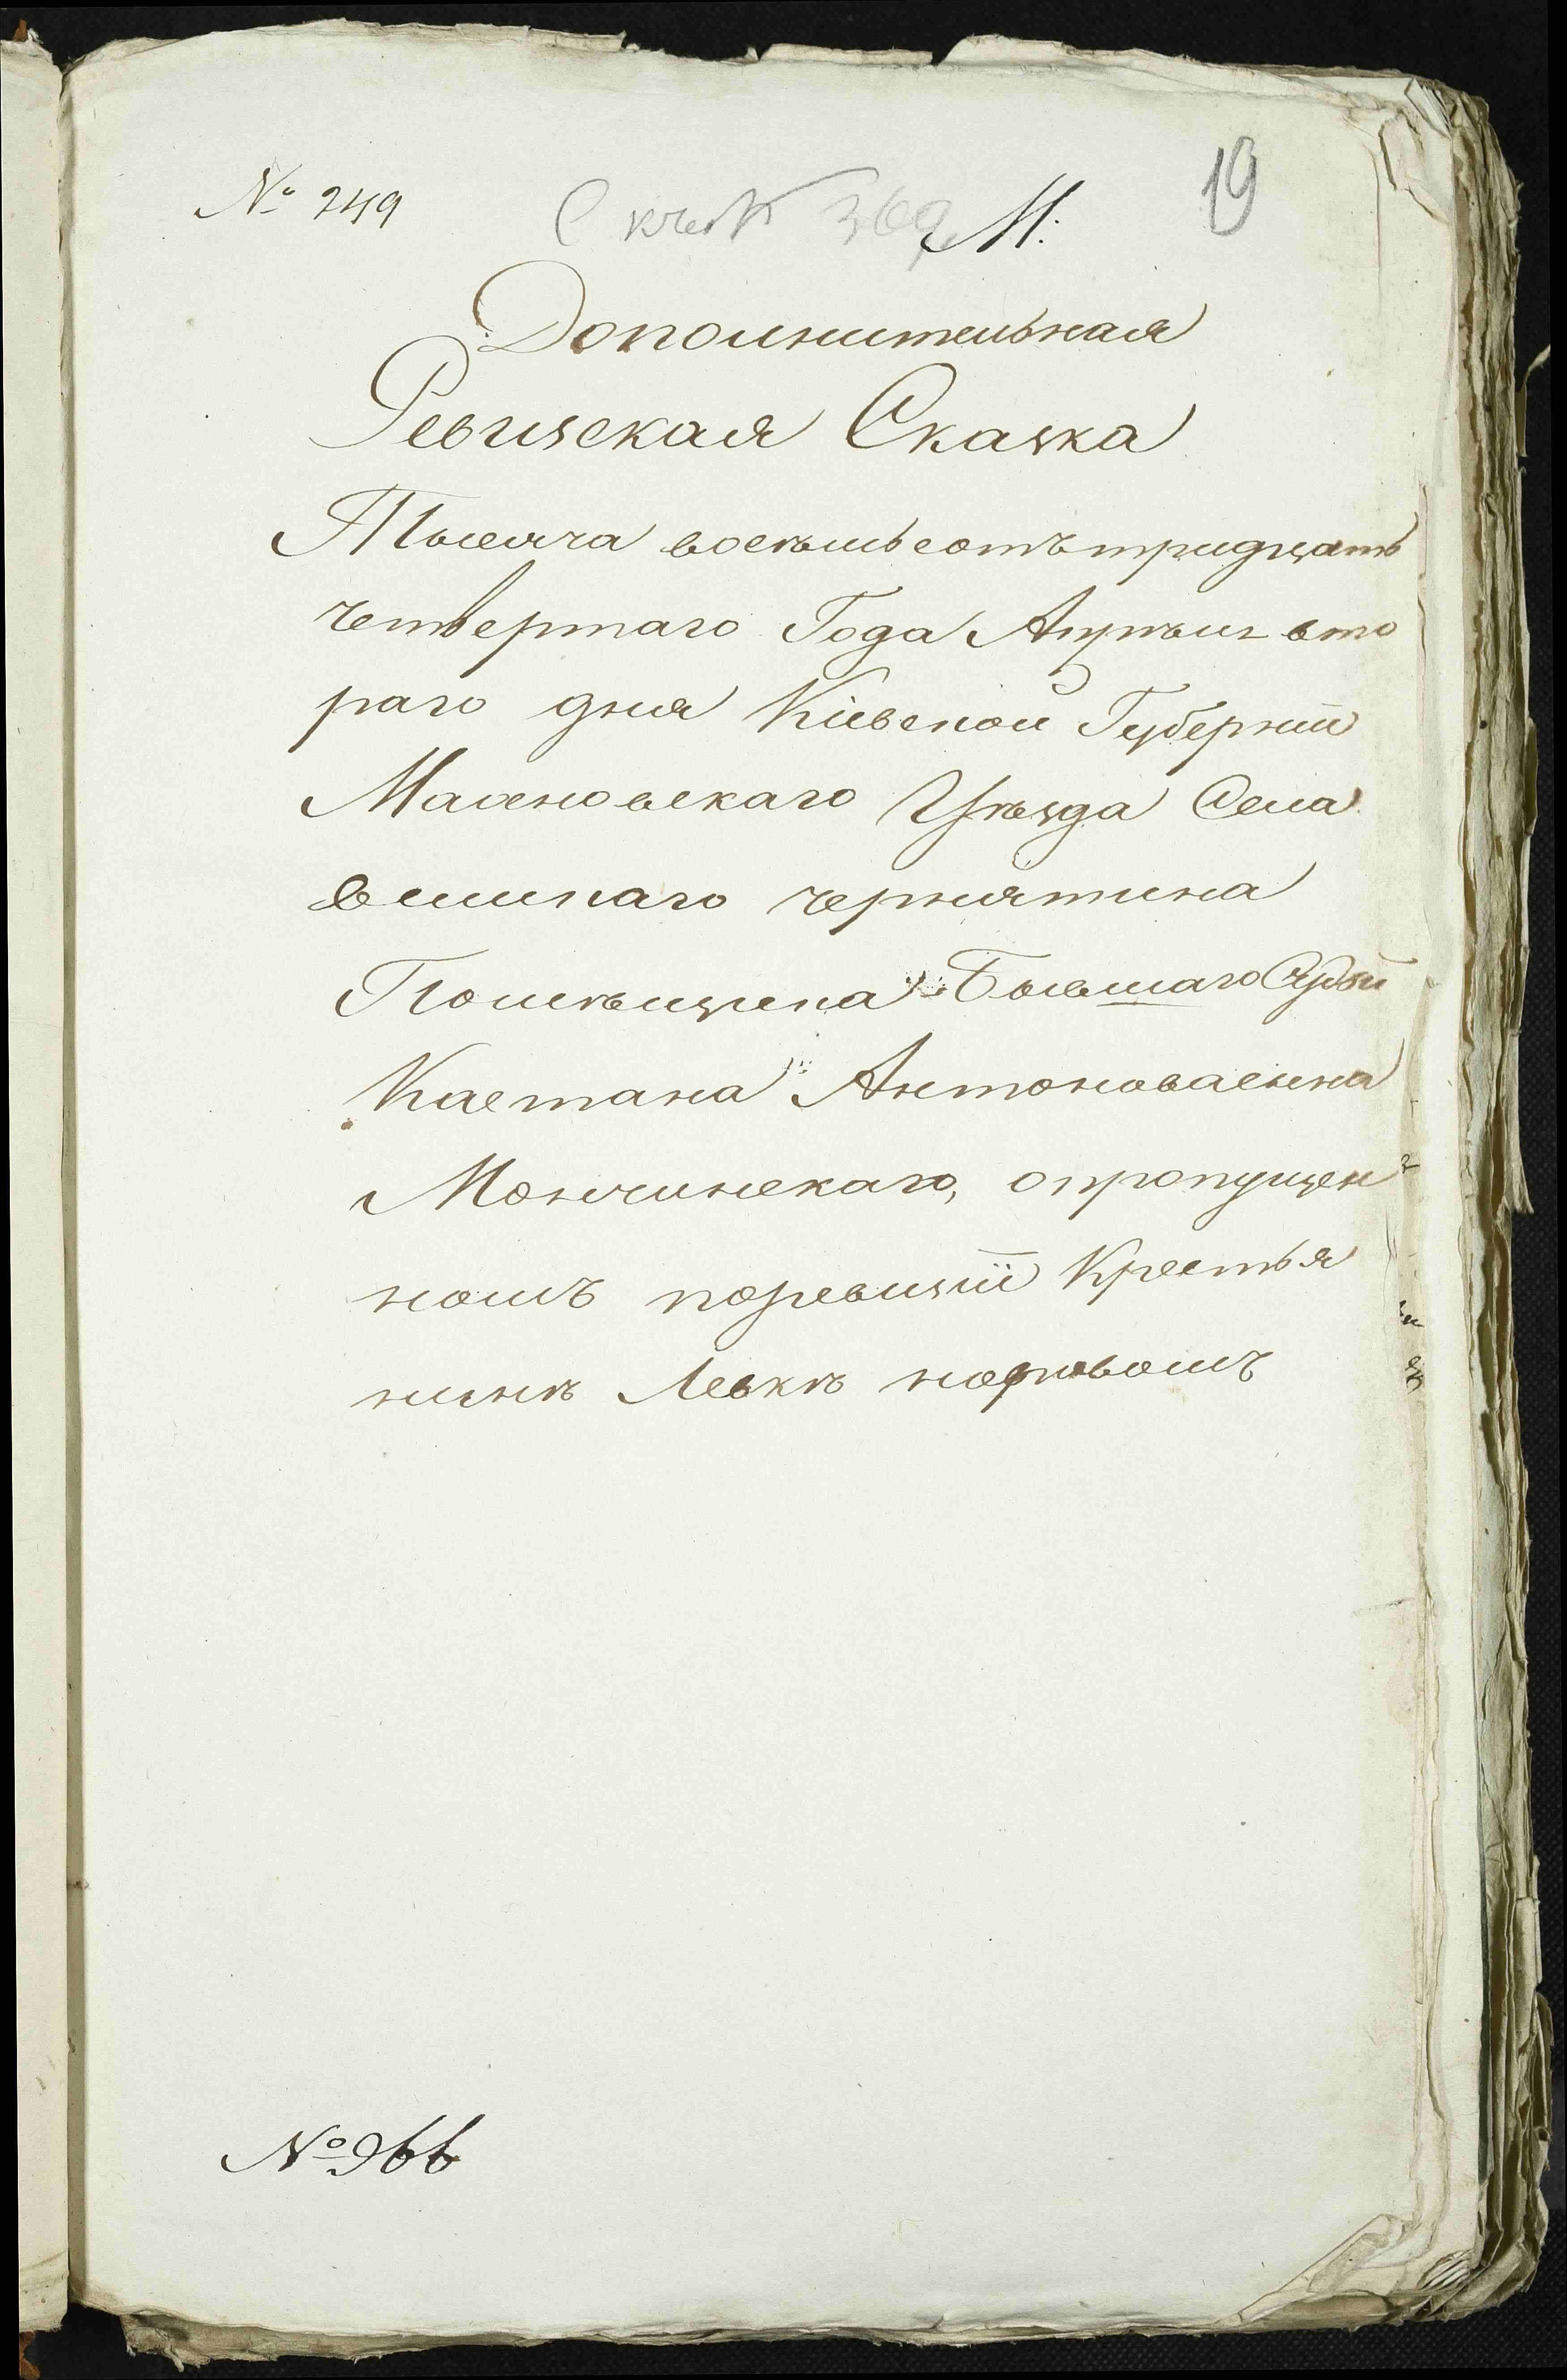 № 249
19
369
М:
Дополнительная
Ревизская Сказка
Тысяча восемьсотъ тридцать
четвертаго Года Апрѣля вто
раго дня Кіевской Губерніи
Махновскаго Уѣзда Села
великаго чернятина
Помѣщика Бывшаго Судьи
Каетана Антоноваенна
Мончинскаго, опропущен
номъ поревизіи Крестья
нинѣ Левкѣ
№ 966